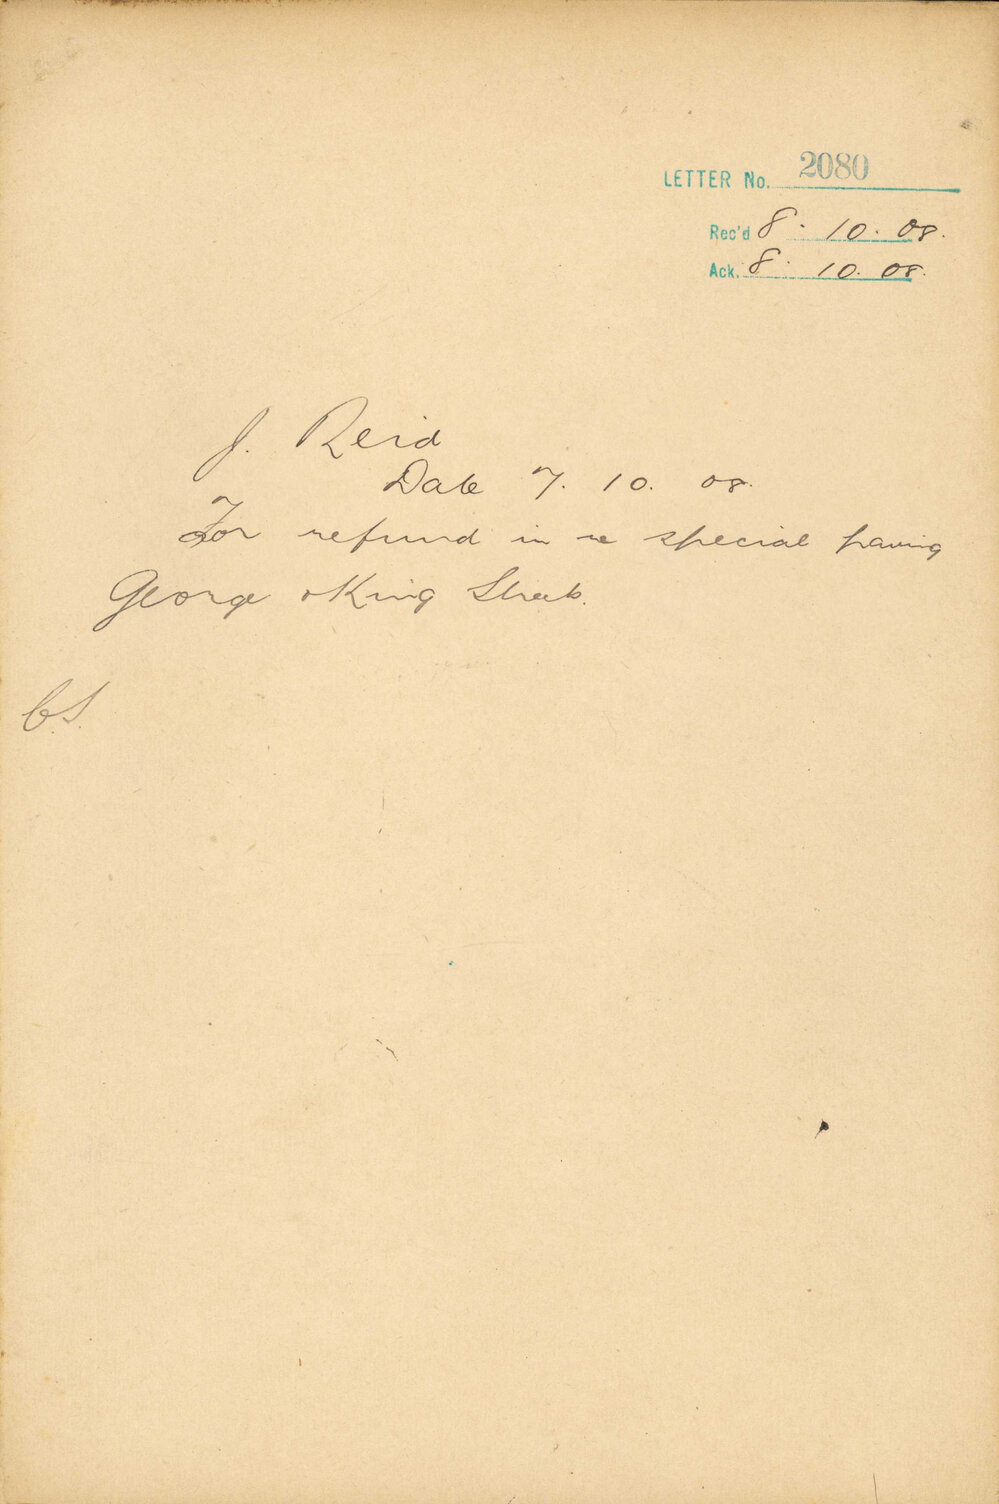 LETTER No. 2080
Rec'd 8. 10. 08.
Ack. 8. 10. 08.
J. Reid
Date 7. 10. 08.
For refund in re special paving
George & King Streets.
C.S.